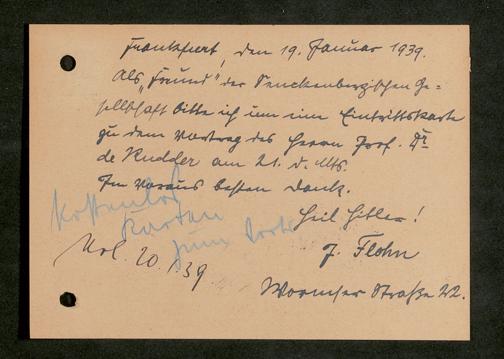 Frankfurt, den 19. Januar 1939.
Als "Freund" der Senckenbergischen Ge-
sellschaft bitte ich um eine Eintrittskarte
zu dem Vortrag des Herrn Prof. Dr.
de Rudder am 21. d. Mts.
Im Voraus besten Dank.
Heil Hitler!
J. Flohn
Wormser Straße 22.
Kostenlos
Karten
zum
20. 1. 39